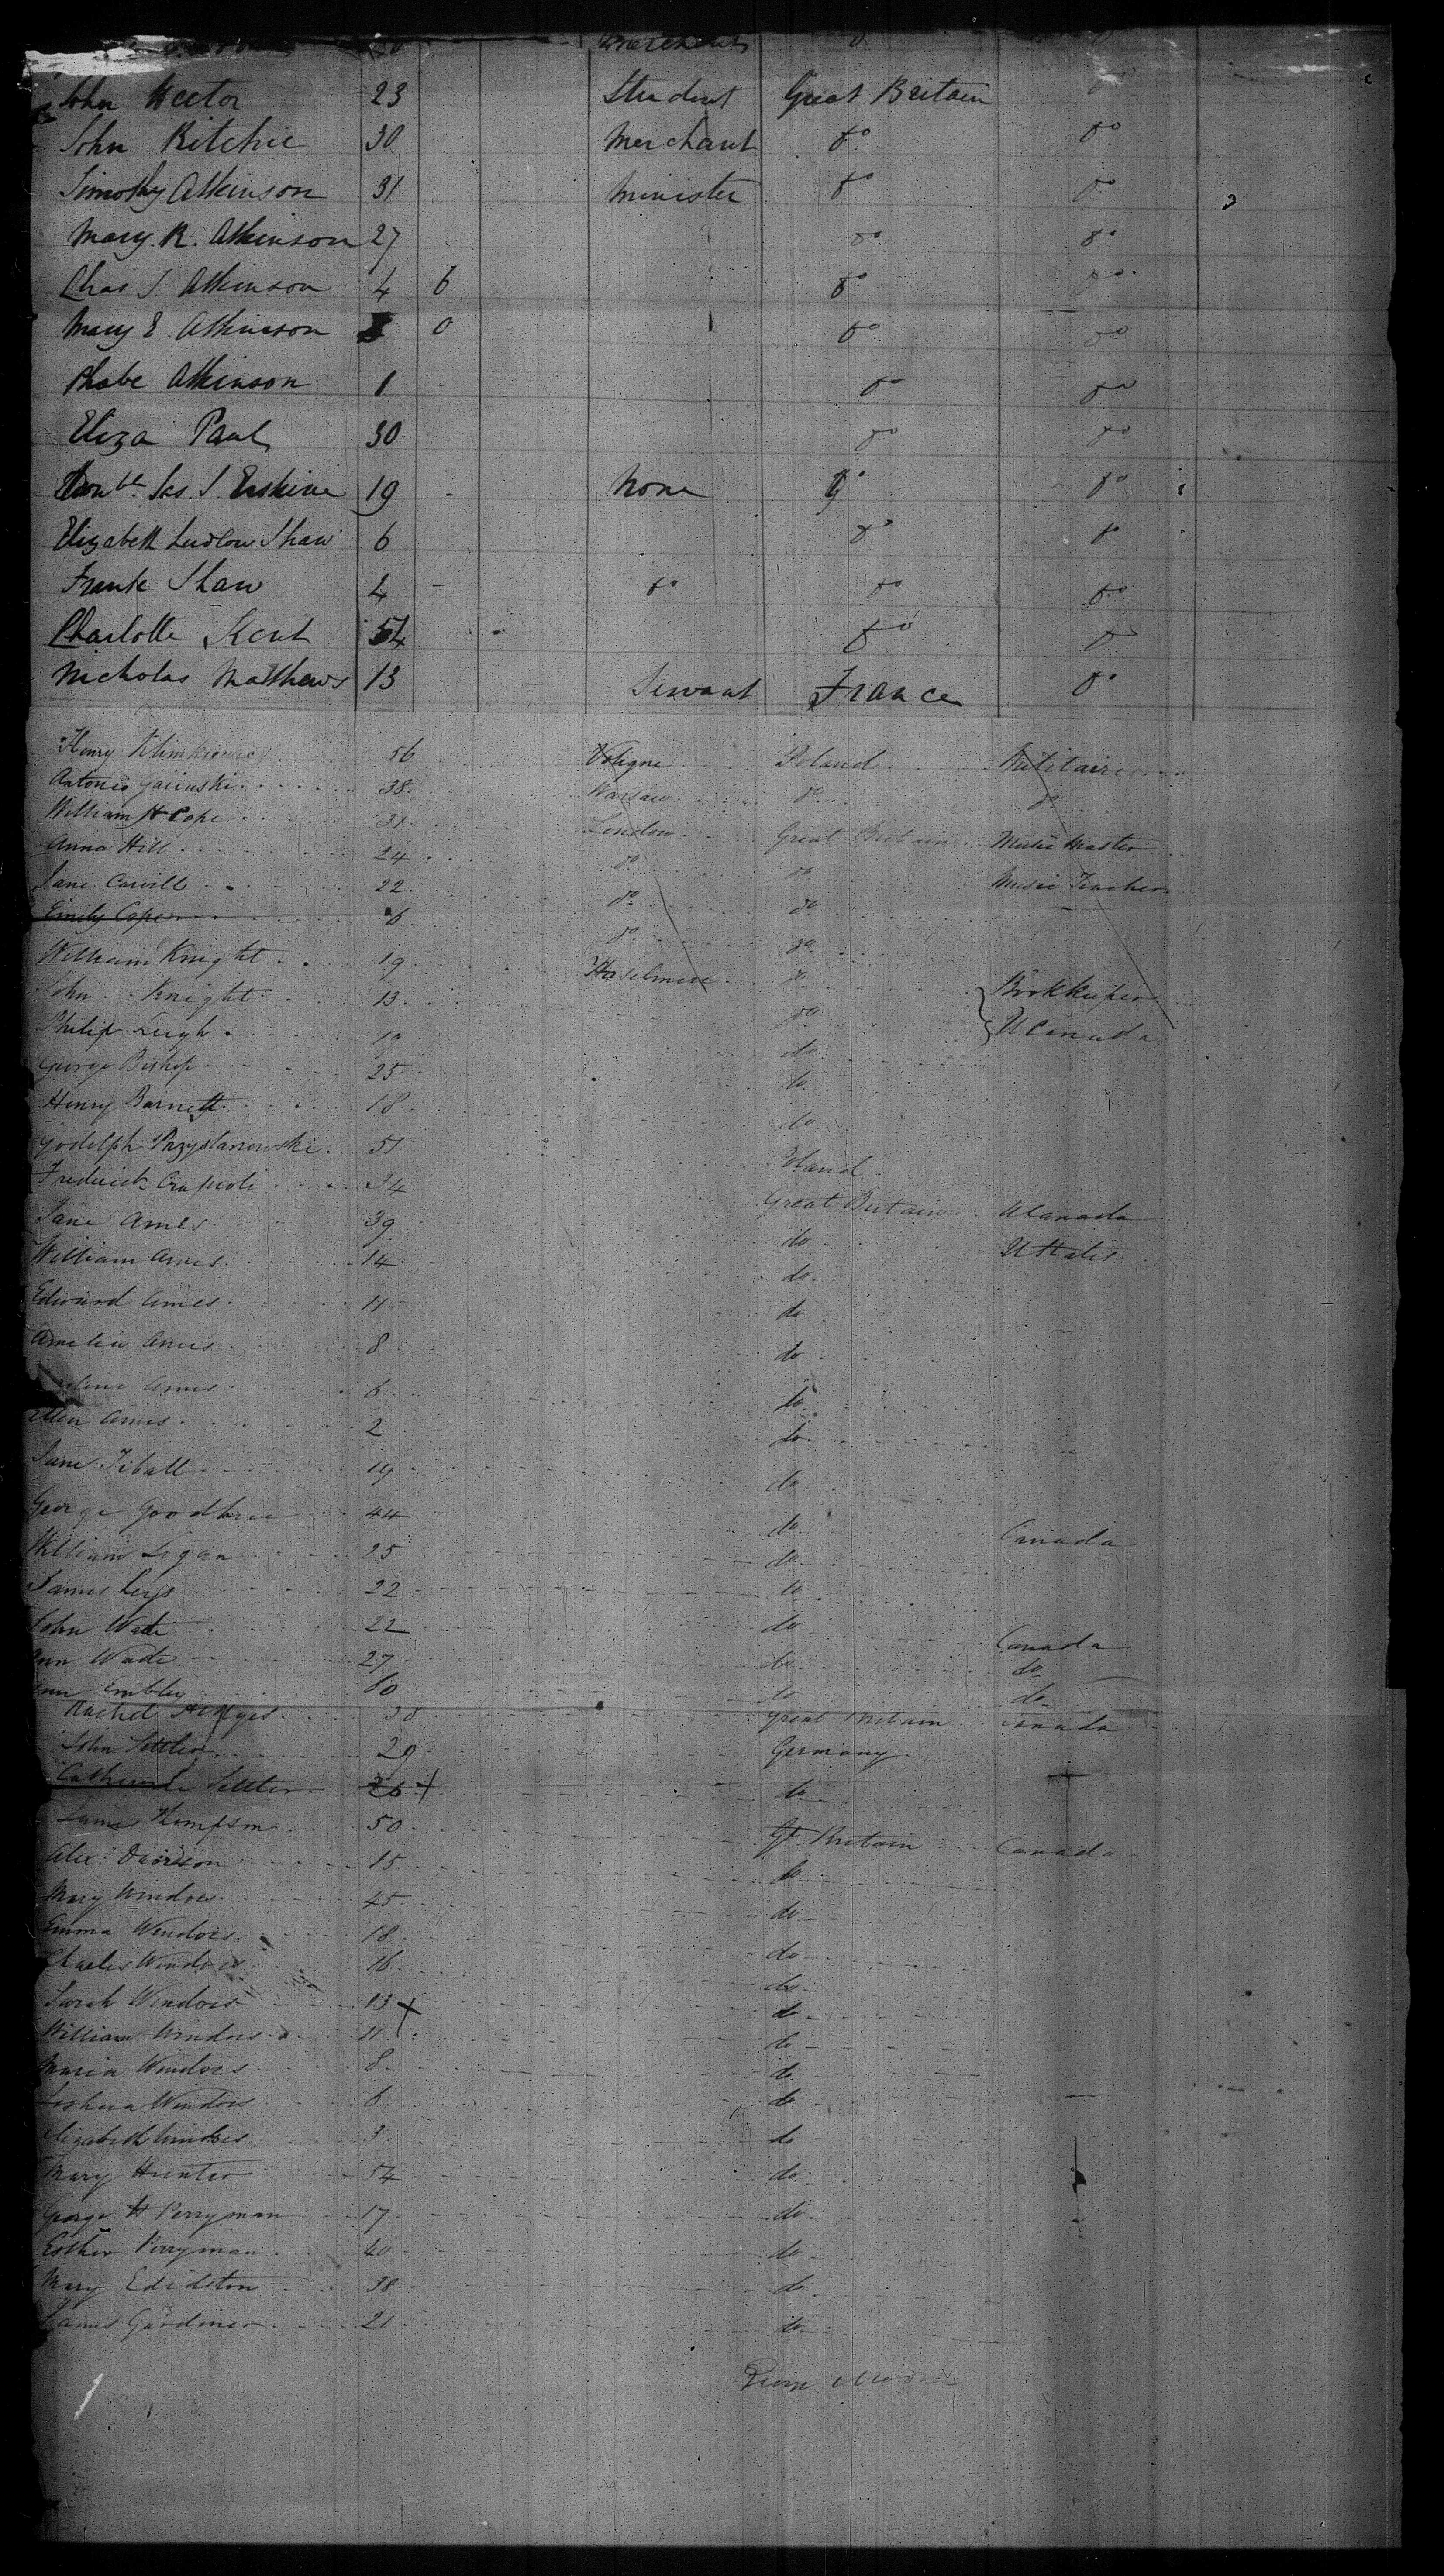 Merchant do
John Hector 23 Student Great Britain do
John Ritchie 30 Merchant do do
Timothy Atkinson 31 Minister do do
Mary R. Atkinson 27 do do
Chas T. Atkinson 4 6 do do
Mary E. Atkinson 0 do do
Phobe Atkinson 1 - do do
Eliza Paul 30 do do
Honble. Jas. S. Erskine 19 - None do do
Elizabeth Ludlow Shaw 6 do do
Frank Shaw 4 - do do do
Charlotte Kent 54 do do
Nicholas Matthews 13 Servant France do
Henry 56 Poland Militair
Antonio 38 Warsaw do do
William H Cope 31 London Great Britain Music Master
Anna Hill 24 do do Music Teacher
Jane Carvill 22 do do
Emily Cope 6 do do
William Knight 19 Haselmere do Bookkeeper
John Knight 13 do U Canada
Philip Leigh 19 do
George Bishop 25 do
Henry Barnett 18 do
Godolph Przystanowski 51 Poland
Frederick 34 Great Britain U Canada
Jane Ames 39 do U States
William Ames 14 do
Edward Ames 11 do
Amelia Ames 8 do
Ames 6 do
Ellen Ames 2 do
Jane Tiball 19 do
George Goodhue 44 do Canada
William Logan 25 do
James Leys 22 do
John Wade 22 do Canada
Ann Wade 27 do do
Ann Embley 60 do do
Rachel 38 Great Britain Canada
John Settler 29 Germany
Catherine Settler 26 + do
James Thompson 50 Gt. Britain Canada
Alex: Davidson 15 do
Mary Windors 45 do
Emma Windors 18 do
Charles Windors 16 do
Sarah Windors 13 do
William Windors 11 do
Maria Windors 8 do
Joshua Windors 6 do
Elizabeth Windors 3 do
Mary Hunter 54 do
George H Perryman 17 do
Esther Perryman 40 do
Mary Edidston 38 do
James Gardiner 21 do